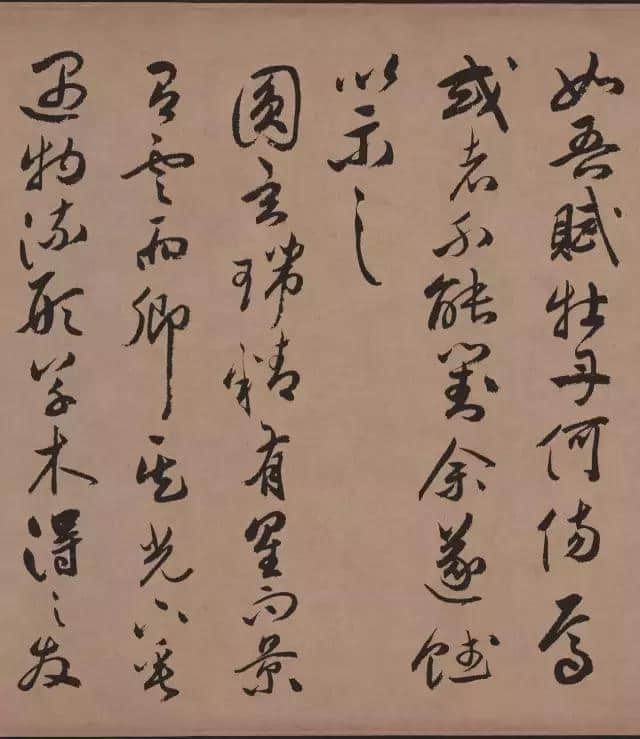 如吾賦牡丹何傷焉
或者不能對余遂賦
以示之
圓玄瑞精有星而景
有雲而卿其光下垂
遇物流形草木得之發